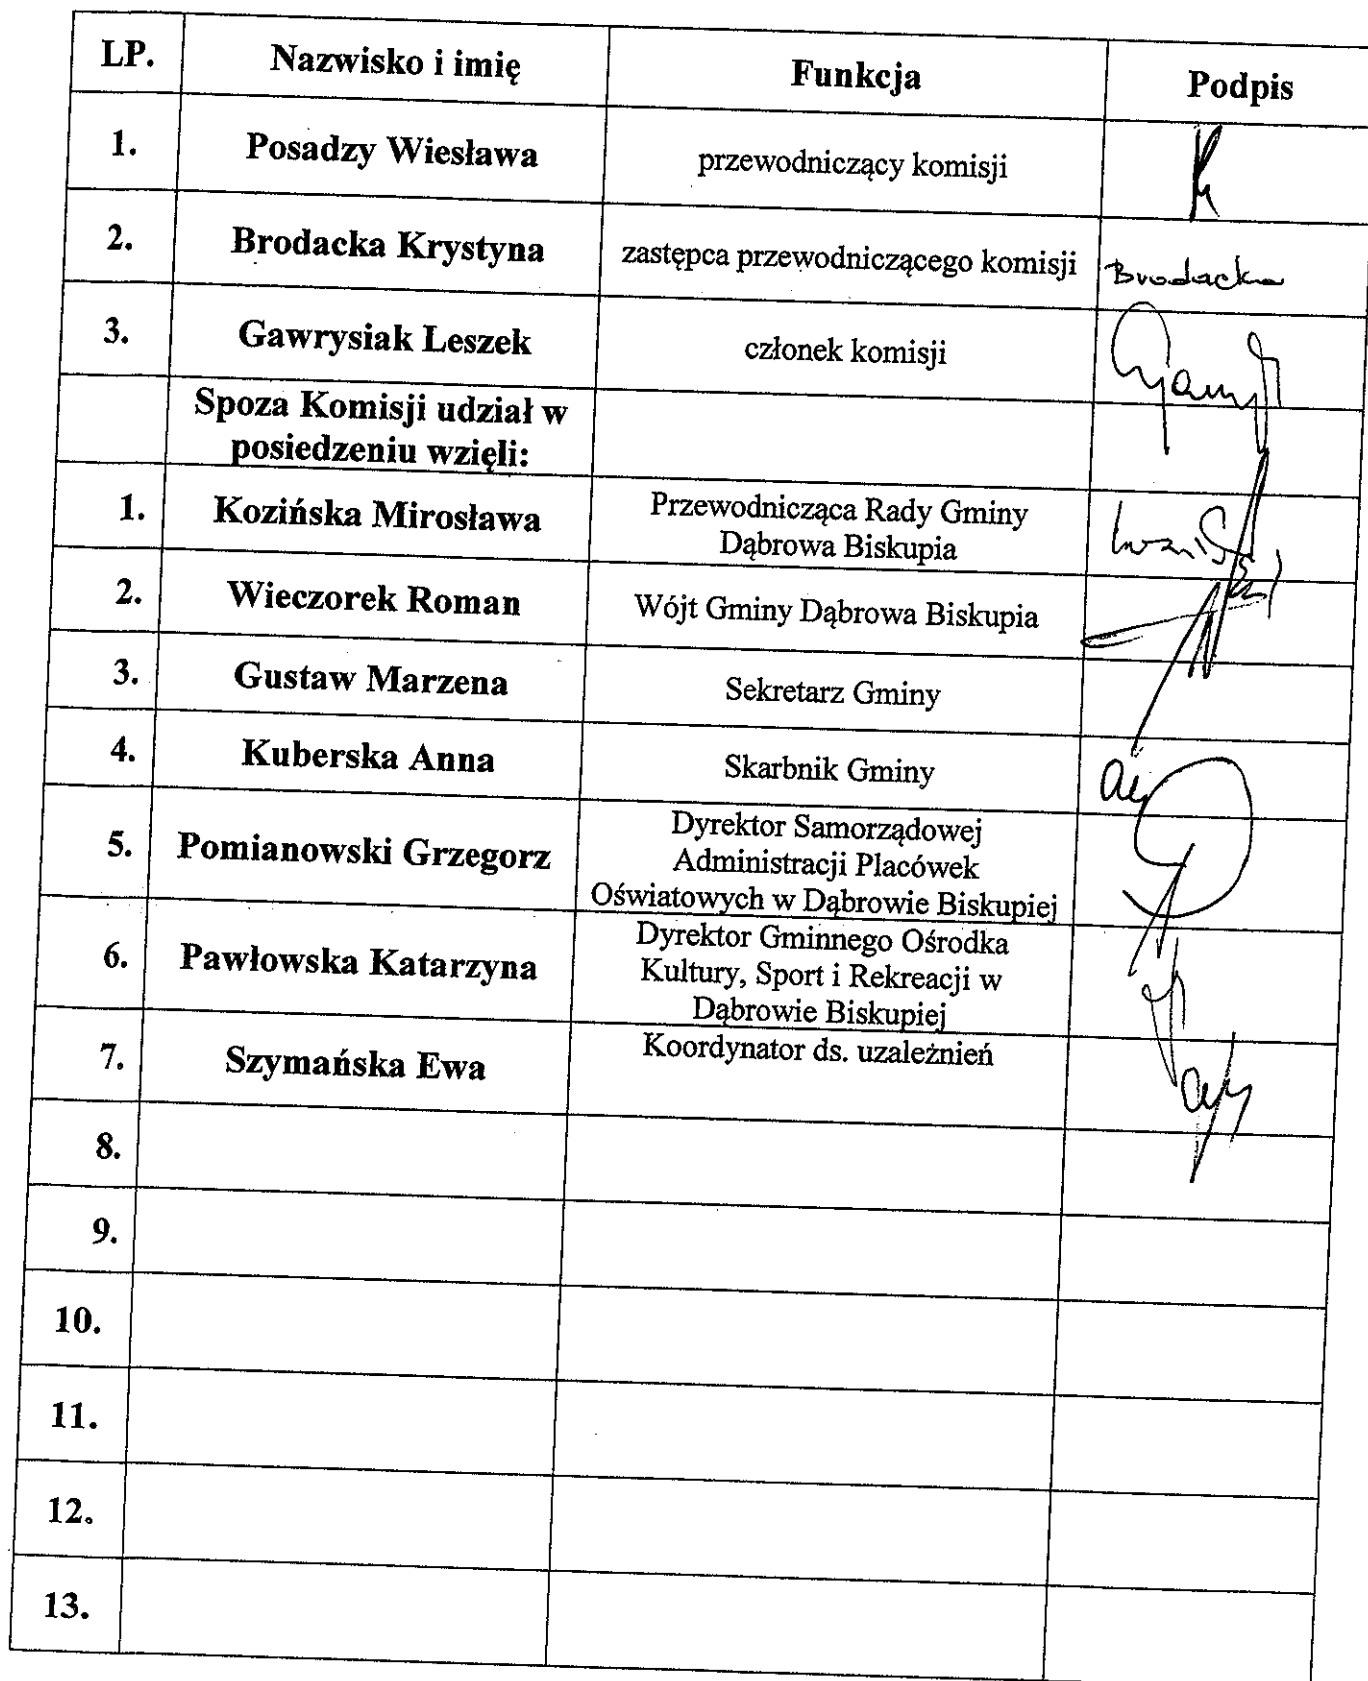 LP. Nazwisko i imię Funkcja Podpis
1. Posadzy Wiesława przewodniczący komisji
2. Brodacka Krystyna zastępca przewodniczącego komisji Brodacka
3. Gawrysiak Leszek członek komisji
Spoza Komisji udział w
posiedzeniu wzięli:
1. Kozińska Mirosława Przewodnicząca Rady Gminy
Dąbrowa Biskupia
2. Wieczorek Roman Wójt Gminy Dąbrowa Biskupia
3. Gustaw Marzena Sekretarz Gminy
4. Kuberska Anna Skarbnik Gminy
5. Pomianowski Grzegorz Dyrektor Samorządowej
Administracji Placówek
Oświatowych w Dąbrowie Biskupiej
6. Pawłowska Katarzyna Dyrektor Gminnego Ośrodka
Kultury, Sport i Rekreacji w
Dąbrowie Biskupiej
7. Szymańska Ewa Koordynator ds. uzależnień
8.
9.
10.
11.
12.
13.